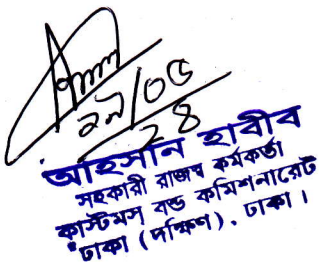 ২৯/০৫
২৪
আহসান হাবীব
সহকারী রাজস্ব কর্মকর্তা
কাস্টমস্ বন্ড কমিশনারেট
ঢাকা (দক্ষিণ), ঢাকা।